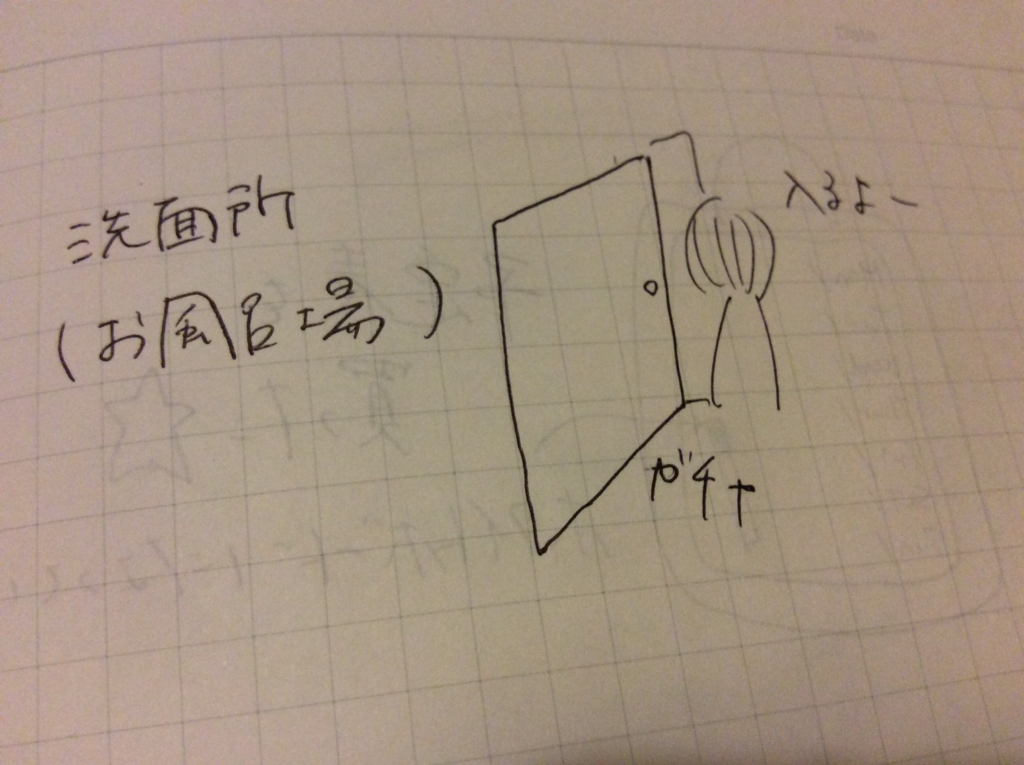 洗面所
(お風呂場)
入るよー
ガチャ